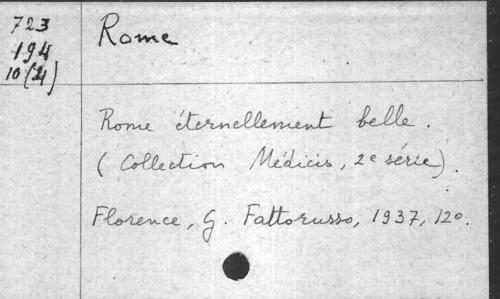 723
194
10(4)
Rome
Rome éternellement belle.
(Collection Médicis, 2e série).
Florence, G. Fattorusso, 1937, 12o.